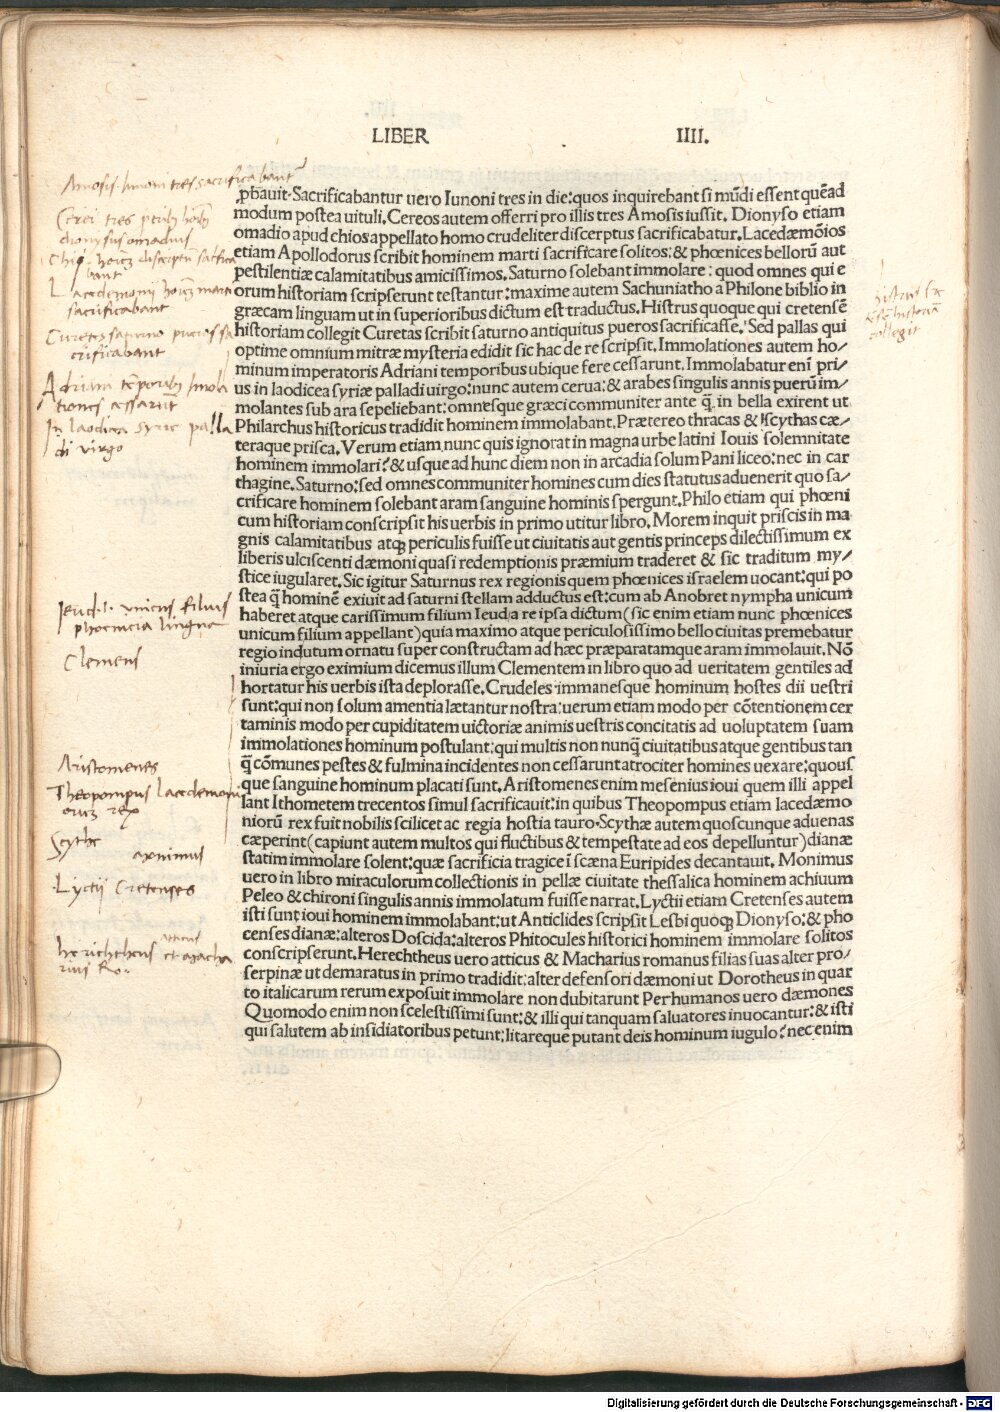 LIBER IIII.
Amosis Iunoni tres sacrificabant
ꝓbauit.Sacrificabantur uero Iunoni tres in die:quos inquirebant si mūdi essent quēad
modum postea uituli.Cereos autem offerri pro illis tres Amosis iussit.Dionyso etiam
omadio apud chios appellato homo crudeliter discerptus sacrificabatur.Lacedæmōios
etiam Apollodorus scribit hominem marti sacrificare solitos:& phœnices bellorū aut
pestilentiæ calamitatibus amicissimos.Saturno solebant immolare:quod omnes qui e
orum historiam scripserunt testantur:maxime autem Sachuniatho a Philone biblio in
græcam linguam ut in superioribus dictum est traductus.Histrus quoque qui cretensē
historiam collegit Curetas scribit saturno antiquitus pueros sacrificasse.Sed pallas qui
optime omnium mitræ mysteria edidit sic hac de re scripsit.Immolationes autem ho/
minum imperatoris Adriani temporibus ubique fere cessarunt.Immolabatur enī pri/
us in laodicea syriæ palladi uirgo:nunc autem cerua:& arabes singulis annis puerū im/
molantes sub ara sepeliebant:omnesque græci communiter ante q̄ in bella exirent ut
Philarchus historicus tradidit hominem immolabant.Prætereo thracas & scythas cæ/
teraque prisca.Verum etiam nunc quis ignorat in magna urbe latini Iouis solemnitate
hominem immolari?& usque ad hunc diem non in arcadia solum Pani liceo:nec in car
thagine.Saturno:sed omnes communiter homines cum dies statutus aduenerit quo sa/
crificare hominem solebant aram sanguine hominis spergunt.Philo etiam qui phœni
cum historiam conscripsit his uerbis in primo utitur libro.Morem inquit priscis in ma
gnis calamitatibus atqꝫ periculis fuisse ut ciuitatis aut gentis princeps dilectissimum ex
liberis ulciscenti dæmoni quasi redemptionis præmium traderet & sic traditum my/
stice iugularet.Sic igitur Saturnus rex regionis quem phœnices israelem uocant:qui po
stea q̄ hominē exiuit ad saturni stellam adductus est:cum ab Anobret nympha unicum
haberet atque carissimum filium Ieuda re ipsa dictum(sic enim etiam nunc phœnices
unicum filium appellant)quia maximo atque periculosissimo bello ciuitas premebatur
regio indutum ornatu super constructam ad hæc præparatamque aram immolauit.Nō
iniuria ergo eximium dicemus illum Clementem in libro quo ad ueritatem gentiles ad
hortatur his uerbis ista deplorasse.Crudeles immanesque hominum hostes dii uestri
sunt:qui non solum amentia lætantur nostra:uerum etiam modo per cōtentionem cer
taminis modo per cupiditatem uictoriæ animis uestris concitatis ad uoluptatem suam
immolationes hominum postulant:qui multis non nunq̄ ciuitatibus atque gentibus tan
q̄ cōmunes pestes & fulmina incidentes non cessarunt atrociter homines uexare:quous
que sanguine hominum placati sunt.Aristomenes enim mesenius ioui quem illi appel
lant Ithometem trecentos simul sacrificauit:in quibus Theopompus etiam lacedæmo
niorū rex fuit nobilis scilicet ac regia hostia tauro.Scythæ autem quoscunque aduenas
cæperint(capiunt autem multos qui fluctibus & tempestate ad eos depelluntur)dianæ
statim immolare solent:quæ sacrificia tragice ī scæna Euripides decantauit.Monimus
uero in libro miraculorum collectionis in pellæ ciuitate thessalica hominem achiuum
Peleo & chironi singulis annis immolatum fuisse narrat.Lyctii etiam Cretenses autem
isti sunt ioui hominem immolabant:ut Anticlides scripsit Lesbi quoqꝫ Dionyso:& pho
censes dianæ:alteros Doscida:alteros Phitocules historici hominem immolare solitos
conscripserunt.Herechtheus uero atticus & Macharius romanus filias suas alter pro/
serpinæ ut demaratus in primo tradidit:alter defensori dæmoni ut Dorotheus in quar
to italicarum rerum exposuit immolare non dubitarunt Perhumanos uero dæmones
Quomodo enim non scelestissimi sunt:& illi qui tanquam saluatores inuocantur:& isti
qui salutem ab insidiatoribus petunt:litareque putant deis hominum iugulo?nec enim
dionysus omadius
Lacedemonii hoiēm marti
sacrificabant
Curetes saturno pueros sa
crificabant
Adriani tēporibꝫ Imola
tiones cessarūt
In laodicea Syrie palla
di virgo
Ieud.i. vnicus filius
phoenicia lingua
Clemens
Aristomenes
Theopompus lacedemoni
orum rex
Scythe
Lyctii Cretenses
Herichtheus atticus et Macha
rius Ro.
collegit
Digitalisierung gefördert durch die Deutsche Forschungsgemeinschaft - DFG